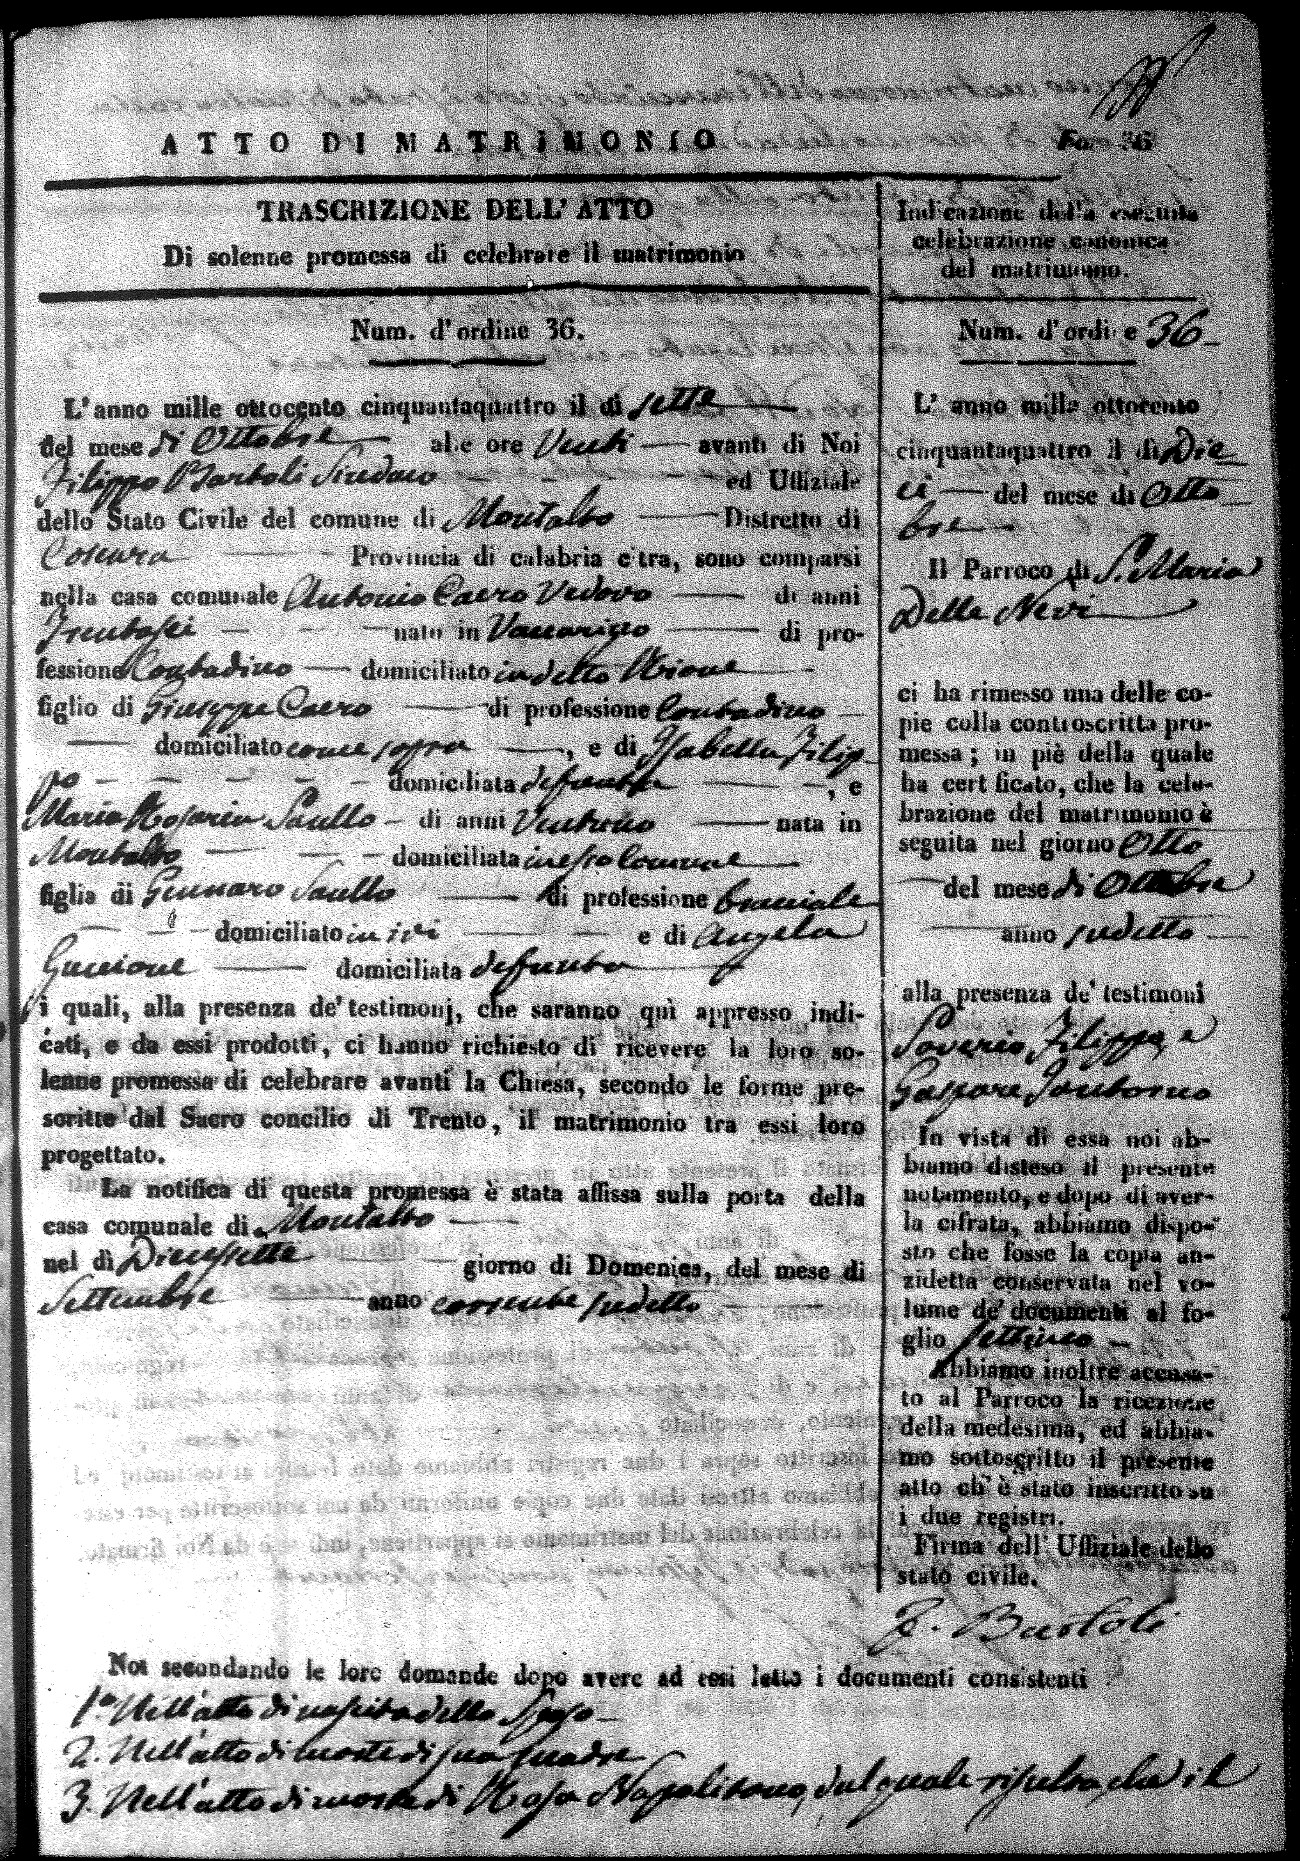 ATTO DI MATRIMONIO
Fog 36
TRASCRIZIONE DELL' ATTO
Di solenne promessa di celebrare il matrimonio
Num. d'ordine 36.
L'anno mille ottocento cinquantaquattro il dì sette
del mese di Ottobre alle ore Venti avanti di Noi
Filippo Bartoli Sindaco ed Uffiziale
dello Stato Civile del comune di Montalto Distretto di
Cosenza Provincia di calabria citra, sono comparsi
nella casa comunale Antonio Caero Vedovo di anni
Trentasei nato in Vaccarizzo di pro-
fessione Contadino domiciliato in detto Rione
figlio di Giuseppe Caero di professione Contadino
domiciliato come sopra, e di Isabella Filip
po domiciliata defunta, e
Maria Rosaria Saullo di anni Ventuno nata in
Montalto domiciliata in esso Comune
figlia di Gennaro Saullo di professione bracciale
domiciliato in ivi e di Angela
Guccione domiciliata defunta
i quali, alla presenza de' testimonj, che saranno quì appresso indi-
cati, e da essi prodotti, ci hanno richiesto di ricevere la loro so-
lenne promessa di celebrare avanti la Chiesa, secondo le forme pre-
scritte dal Sacro concilio di Trento, il matrimonio tra essi loro
progettato.
La notifica di questa promessa è stata affissa sulla porta della
casa comunale di Montalto
nel dì Diecessette giorno di Domenica, del mese di
Settembre anno corrente sudetto
Indicazione della eseguita
celebrazione canonica
del matrimonio.
Num. d'ordi e 36
L' anno mille ottocento
cinquantaquattro il dì Die
ci del mese di Otto
bre
Il Parroco di S. Maria
Della Nevi
ci ha rimesso una delle co-
pie colla controscritta pro-
messa; in piè della quale
ha cert ficato, che la cele-
brazione del matrimonio è
seguita nel giorno Otto
del mese di Ottobre
anno sudetto
alla presenza de' testimoni
Saverio Filippo, e
Gaspare Santorno
In vista di essa noi ab-
biamo disteso il presente
notamento, e dopo di aver-
la cifrata, abbiamo dispo-
sto che fosse la copia an-
zidetta conservata nel vo-
lume de' documenti al fo-
glio settimo
Abbiamo inoltre accusa-
to al Parroco la ricezione
della medesima, ed abbia-
mo sottosgritto il presente
atto ch' è stato inscritto su
i due registri.
Firma dell' Uffiziale dello
stato civile.
F. Bartoli
Noi secondando le loro domande dopo avere ad essi letto i documenti consistenti
1º Nell'atto di nascita dello Sposo
2. Nell'atto di morte di sua madre
3. Nell'atto di morte di Rosa Napolitano, dal quale risulta, che il